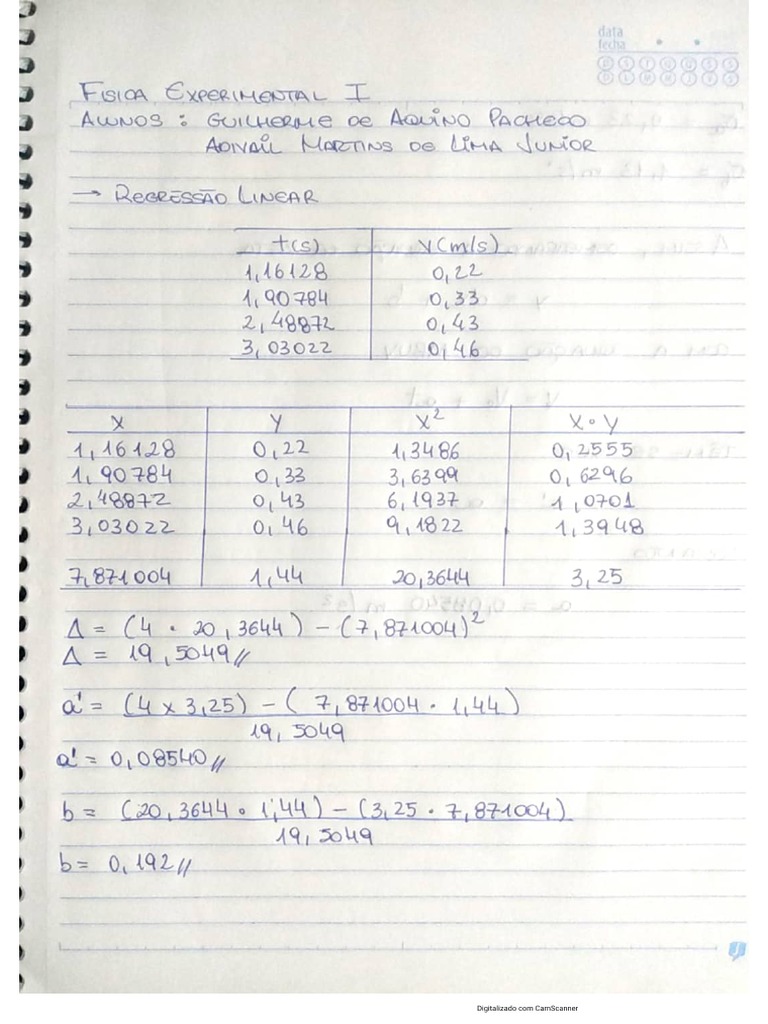 data
fecha
FISICA EXPERIMENTAL I
ALUNOS : GUILHERME DE AQUINO PACHECO
ADIVAIL MARTINS DE LIMA JUNIOR
→ REGRESSÃO LINEAR
t(s) V(m/s)
1,16128 0,22
1,90784 0,33
2,48872 0,43
3,03022 0,46
X Y X² X•Y
1,16128 0,22 1,3486 0,2555
1,90784 0,33 3,6399 0,6296
2,48872 0,43 6,1937 1,0701
3,03022 0,46 9,1822 1,3948
7,871004 1,44 20,3644 3,25
Δ = (4 • 20,3644) - (7,871004)²
Δ = 19,5049//
a' = (4 x 3,25) - ( 7,871004 • 1,44)
19,5049
a' = 0,08540//
b = (20,3644 • 1,44) - (3,25 • 7,871004)
19,5049
b = 0,192//
Digitalizado com CamScanner